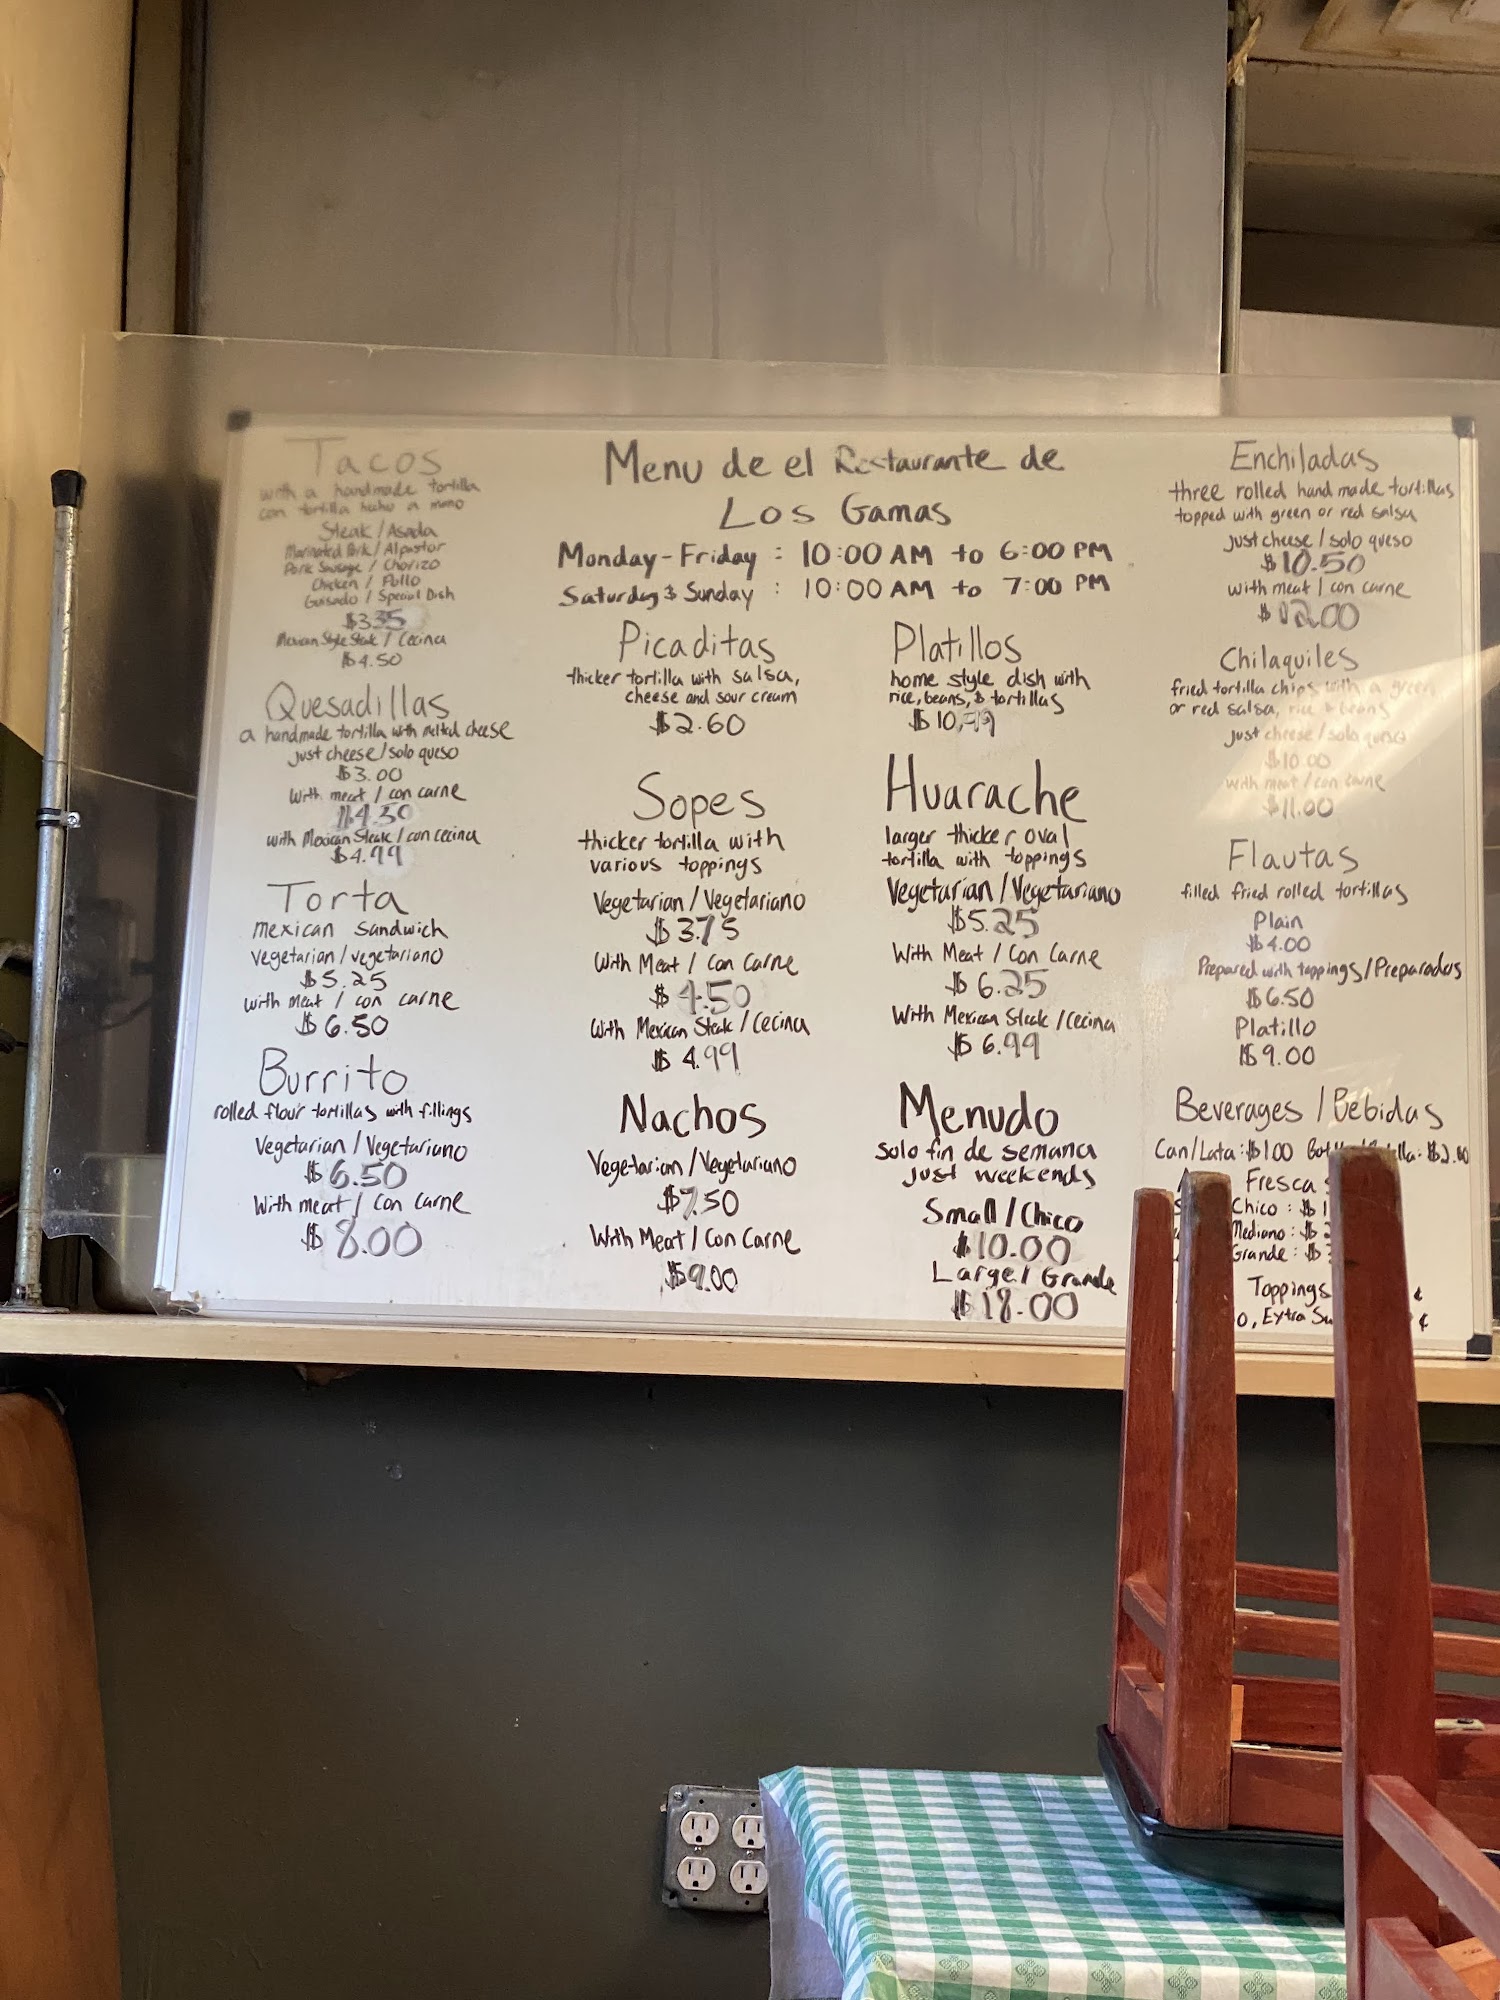 Tacos
with a handmade tortilla
con tortilla hecho a mano
Steak / Asada
Marinated Pork / Al pastor
Pork Sausage / Chorizo
Chicken / Pollo
Guisado / Special Dish
$3.35
Mexican Style Steak / Cecina
$4.50
Quesadillas
a handmade tortilla with melted cheese
just cheese / solo queso
$3.00
With meat / con carne
$4.50
with Mexican Steak / con cecina
$4.99
Torta
mexican sandwich
vegetarian / vegetariano
$5.25
with meat / con carne
$6.50
Burrito
rolled flour tortillas with fillings
Vegetarian / Vegetariano
$6.50
With meat / con carne
$8.00
Menu de el Restaurante de
Los Gamas
Monday - Friday : 10:00 AM to 6:00 PM
Saturday & Sunday : 10:00 AM to 7:00 PM
Picaditas
thicker tortilla with salsa,
cheese and sour cream
$2.60
Sopes
thicker tortilla with
various toppings
Vegetarian / Vegetariano
$3.75
With Meat / Con Carne
$4.50
With Mexican Steak / Cecina
$4.99
Nachos
Vegetarian / Vegetariano
$7.50
With Meat / Con Carne
$9.00
Platillos
home style dish with
rice, beans, & tortillas
$10.99
Huarache
larger thicker oval
tortilla with toppings
Vegetarian / Vegetariano
$5.25
With Meat / Con Carne
$6.25
With Mexican Steak / Cecina
$6.99
Menudo
solo fin de semana
just weekends
Small / Chico
$10.00
Large / Grande
$18.00
Enchiladas
three rolled hand made tortillas
topped with green or red salsa
just cheese / solo queso
$10.50
with meat / con carne
$12.00
Chilaquiles
fried tortilla chips with a green
or red salsa, rice & beans
just cheese / solo queso
$10.00
with meat / con carne
$11.00
Flautas
filled fried rolled tortillas
Plain
$4.00
Prepared with toppings / Preparados
$6.50
Platillo
$9.00
Beverages / Bebidas
Can / Lata : $1.00
Fresca
Chico : $
Mediano : $
Grande : $
Toppings ¢
Extra ¢